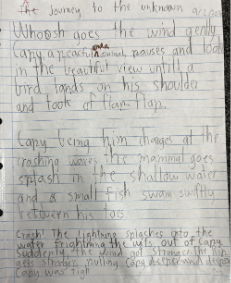 The Journey to the unknown
Whoosh goes the wind gently
Capy a peaceful animal, pauses and look
in the beautiful view untill a
bird lands on his shoulder
and took of flap flap.
Capy being him charges at the
crashing waves the mammal goes
splash in the shallow water
and a small fish swam swiftly
between his toes.
Crash! The lightning splashes onto the
water frightning the out of Capy
Suddenly the wind got stronger the
gets stronger pulling Capy deeper and deeper
Capy was